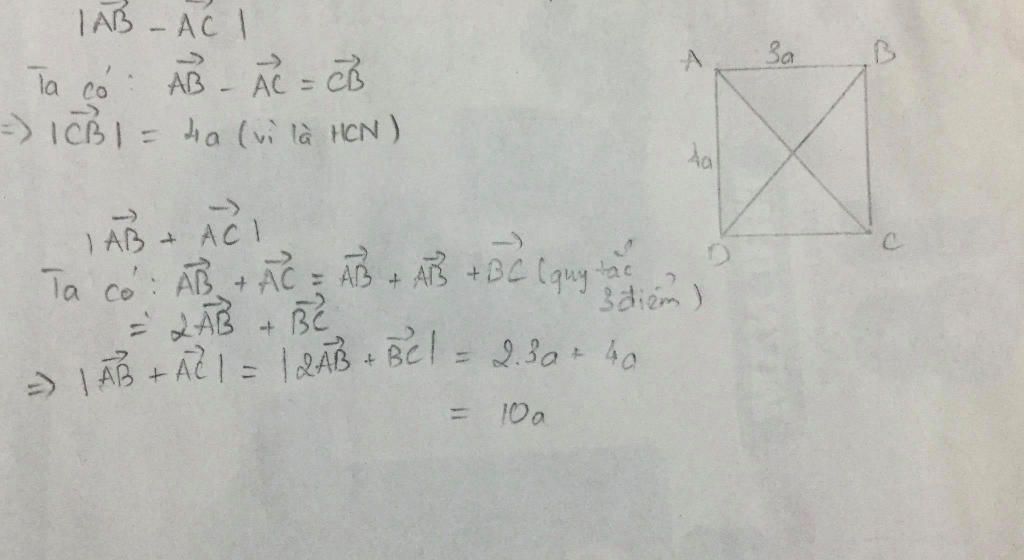 |AB→ - AC→|
Ta có: AB→ - AC→ = CB→
=> |CB→| = 4a (vì là HCN)
|AB→ + AC→|
Ta có: AB→ + AC→ = AB→ + AB→ + BC→ (quy tắc
3 điểm)
= 2AB→ + BC→
=> |AB→ + AC→| = |2AB→ + BC→| = 2.3a + 4a
= 10a
A 3a B
4a
D C